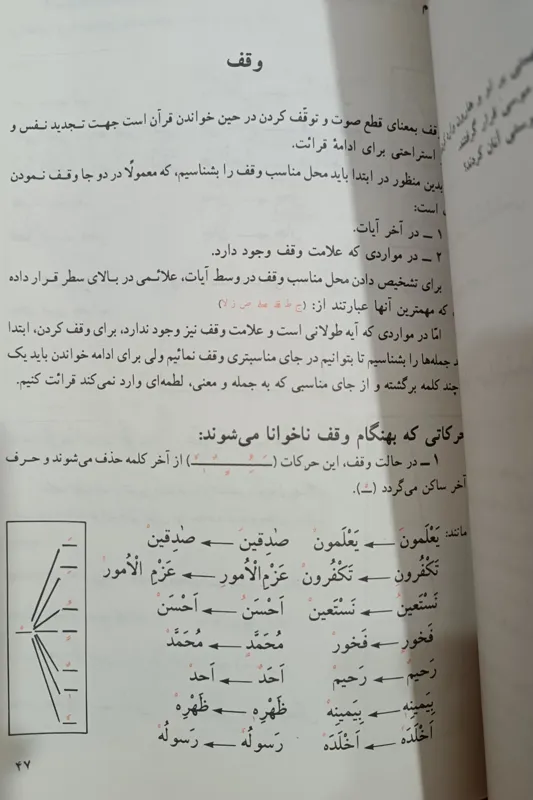 وقف
وقف بمعنای قطع صوت و توقّف کردن در حین خواندن قرآن است جهت تجدید نفس و
استراحتی برای ادامهٔ قرائت.
بدین منظور در ابتدا باید محل مناسب وقف را بشناسیم، که معمولاً در دو جا وقف نمودن
است:
۱ ـ در آخر آیات.
۲ ـ در مواردی که علامت وقف وجود دارد.
برای تشخیص دادن محل مناسب وقف در وسط آیات، علائمی در بالای سطر قرار داده
که مهمترین آنها عبارتند از:
امّا در مواردی که آیه طولانی است و علامت وقف نیز وجود ندارد، برای وقف کردن، ابتدا
جمله‌ها را بشناسیم تا بتوانیم در جای مناسبتری وقف نمائیم ولی برای ادامه خواندن باید یک
چند کلمه برگشته و از جای مناسبی که به جمله و معنی، لطمه‌ای وارد نمی‌کند قرائت کنیم.
حرکاتی که بهنگام وقف ناخوانا می‌شوند:
۱ ـ در حالت وقف، این حرکات () از آخر کلمه حذف می‌شوند و حرف
آخر ساکن می‌گردد (ـْ).
مانند: یَعْلَمونَ ← یَعْلَمونْ صٰدِقینَ ← صٰدِقینْ
تَکْفُرونِ ← تَکْفُرونْ عَزْمِ الْاُمورِ ← عَزْمِ الْاُمورْ
نَسْتَعینُ ← نَسْتَعینْ اَحْسَنُ ← اَحْسَنْ
فَخورٍ ← فَخورْ مُحَمَّدٍ ← مُحَمَّدْ
رَحیمٌ ← رَحیمْ اَحَدٌ ← اَحَدْ
بِیَمینِهٖ ← بِیَمینِهْ ظَهْرِهٖ ← ظَهْرِهْ
اَخْلَدَهٗ ← اَخْلَدَهْ رَسولُهٗ ← رَسولُهْ
۴۷